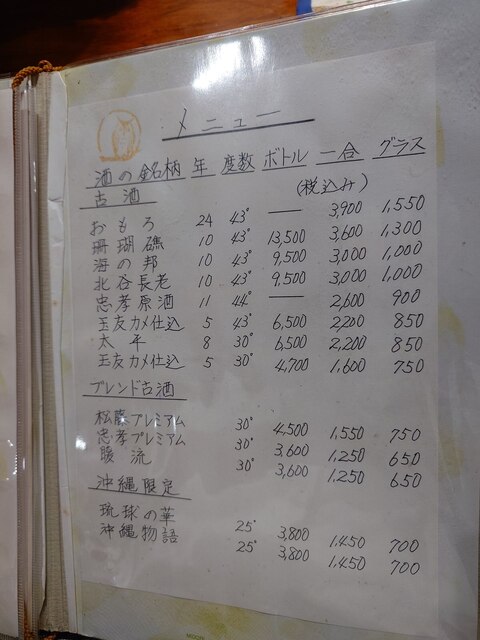 メニュー
酒の銘柄 年 度数 ボトル 一合 グラス
古酒 (税込み)
おもろ 24 43° — 3,900 1,550
珊瑚礁 10 43° 13,500 3,600 1,300
海の邦 10 43° 9,500 3,000 1,000
北谷長老 10 43° 9,500 3,000 1,000
忠孝原酒 11 44° — 2,600 900
玉友カメ仕込 5 43° 6,500 2,200 850
太平 8 30° 6,500 2,200 850
玉友カメ仕込 5 30° 4,700 1,600 750
ブレンド古酒
松藤プレミアム 30° 4,500 1,550 750
忠孝プレミアム 30° 3,600 1,250 650
暖流 30° 3,600 1,250 650
沖縄限定
琉球の華 25° 3,800 1,450 700
沖縄物語 25° 3,800 1,450 700